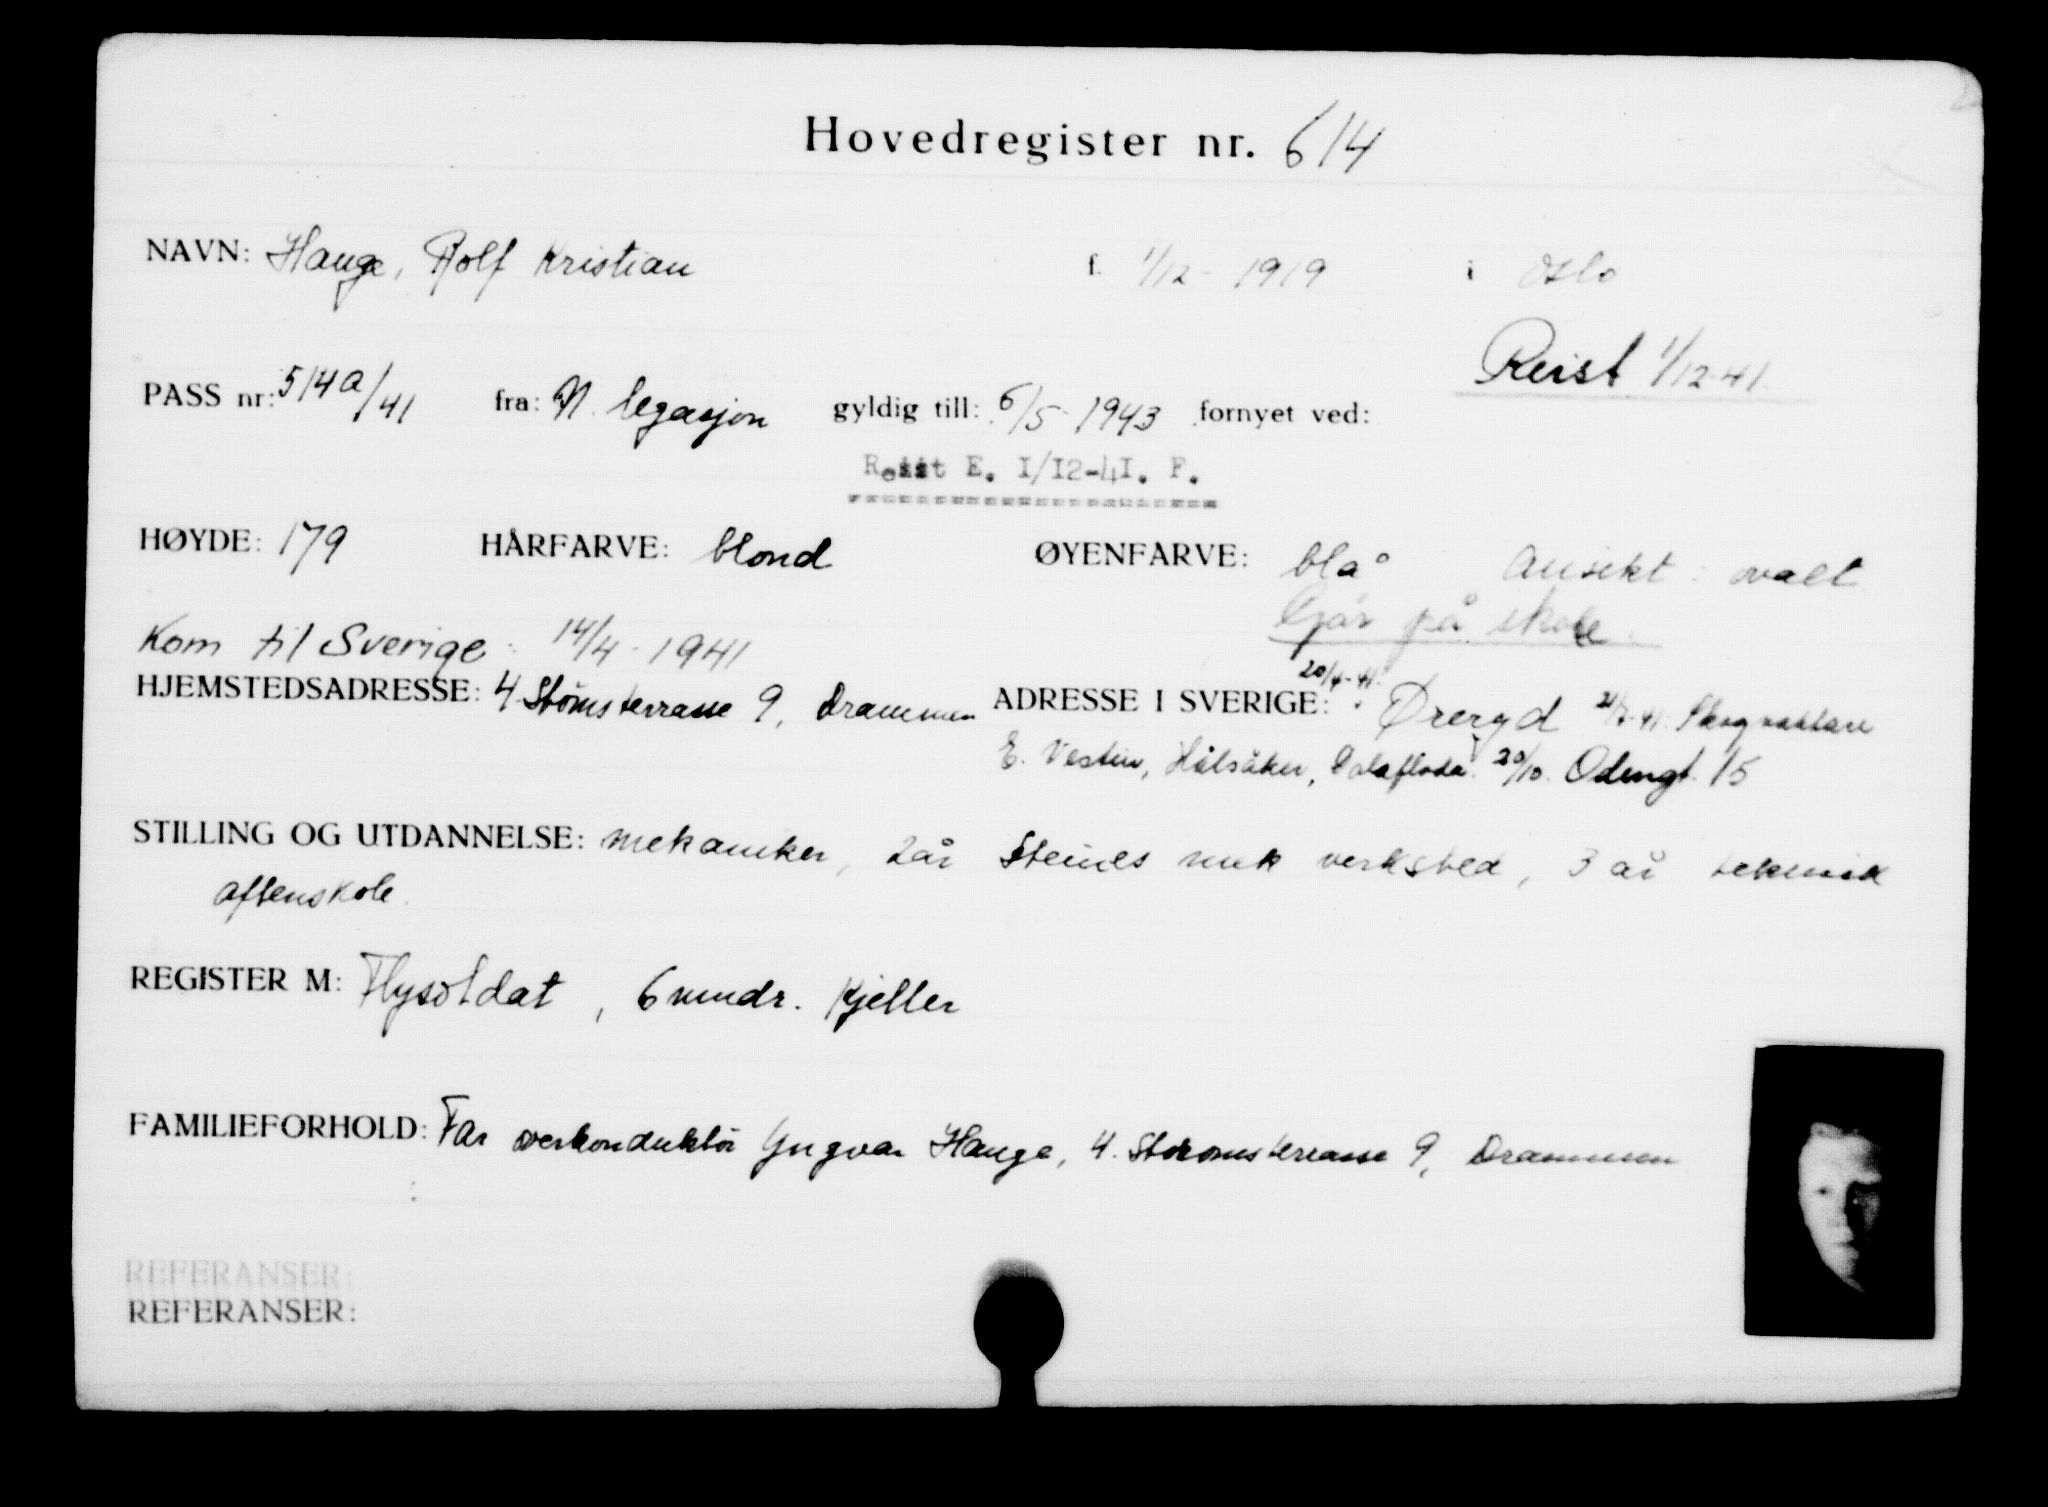 Hovedregister nr. 614
NAVN: Hauge, Rolf Kristian f. 1/12 - 1919 i Oslo
Reist 1/12-41.
PASS nr: 514a/41 fra: N. legasjon gyldig till: 6/5 1943 fornyet ved:
Reist E. I/I2-4I. F.
HØYDE: 179 HÅRFARVE: blond ØYENFARVE: blå Ansikt: ovalt
Går på skole.
Kom til Sverige: 14/4 - 1941
HJEMSTEDSADRESSE: 4 Stömsterrasse 9, Drammen ADRESSE I SVERIGE: 20/4-41: Øreryd 21/7-41: Skogvaktare
E. Vestin, Hålsåker, Dalafloda. 20/10. Odengt. 15
STILLING OG UTDANNELSE: mekaniker, 2 år Steines mek verksted, 3 år teknisk
aftenskole.
REGISTER M: Flysoldat, 6 mndr. Kjeller
FAMILIEFORHOLD: Far overkonduktör Yngvar Hauge, 4. Strømsterrasse 9, Drammen
REFERANSER:
REFERANSER: